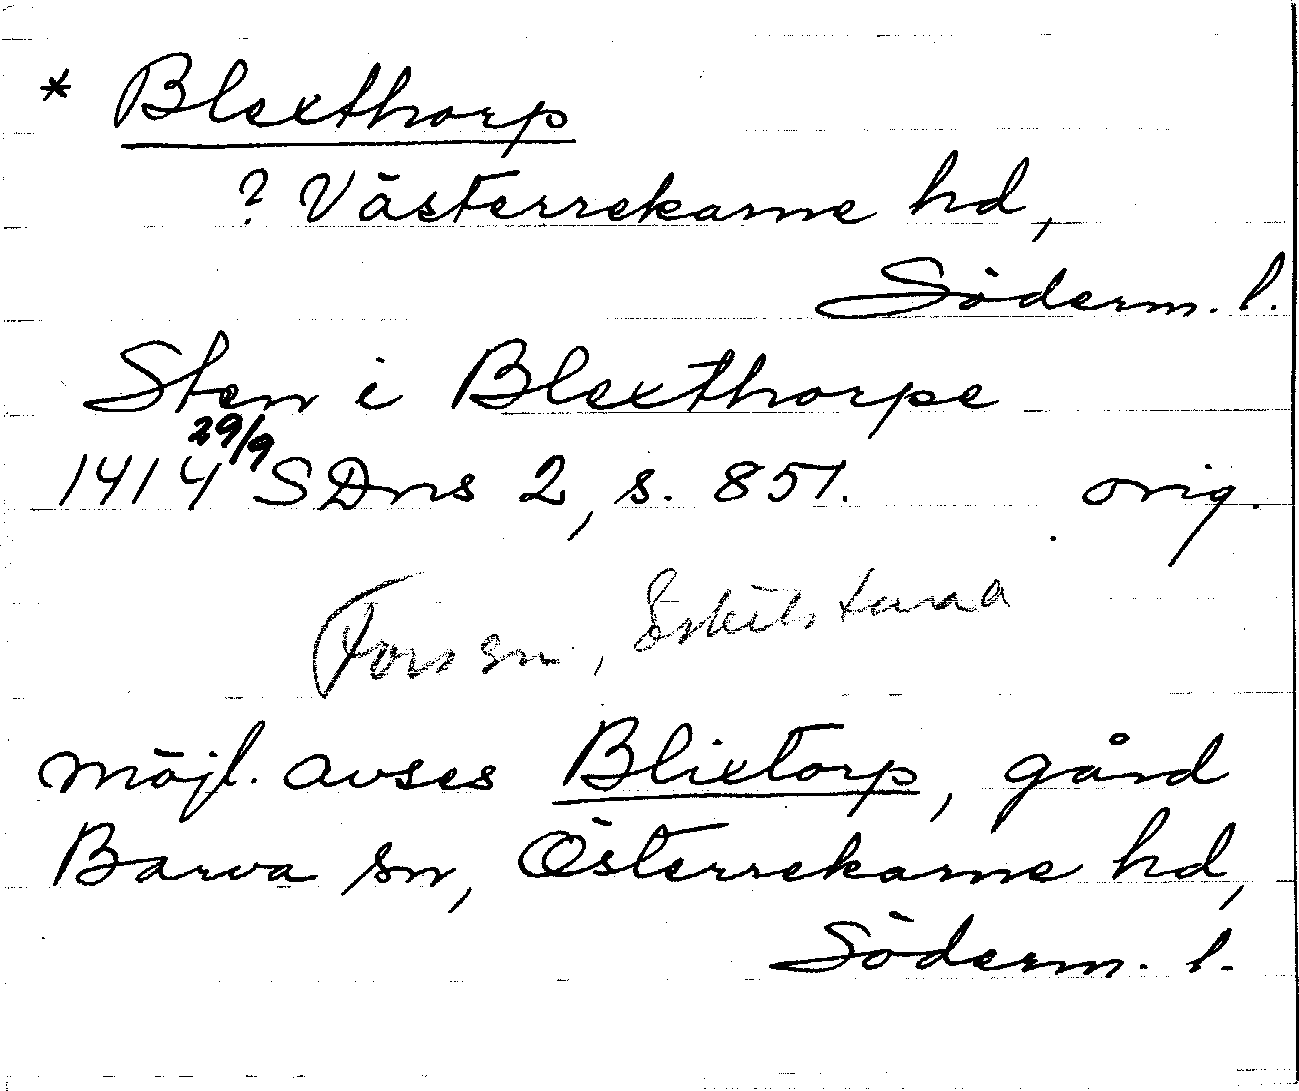 * Blexthorp
? Västerrekarne hd,
Söderm. l.
Sten i Blexthorpe
1414 29/9 SDns 2, s. 851. orig.
Fors sn, Eskilstuna
möjl. avses Blixtorp, gård
Barva sn, Österrekarne hd,
Söderm. l.